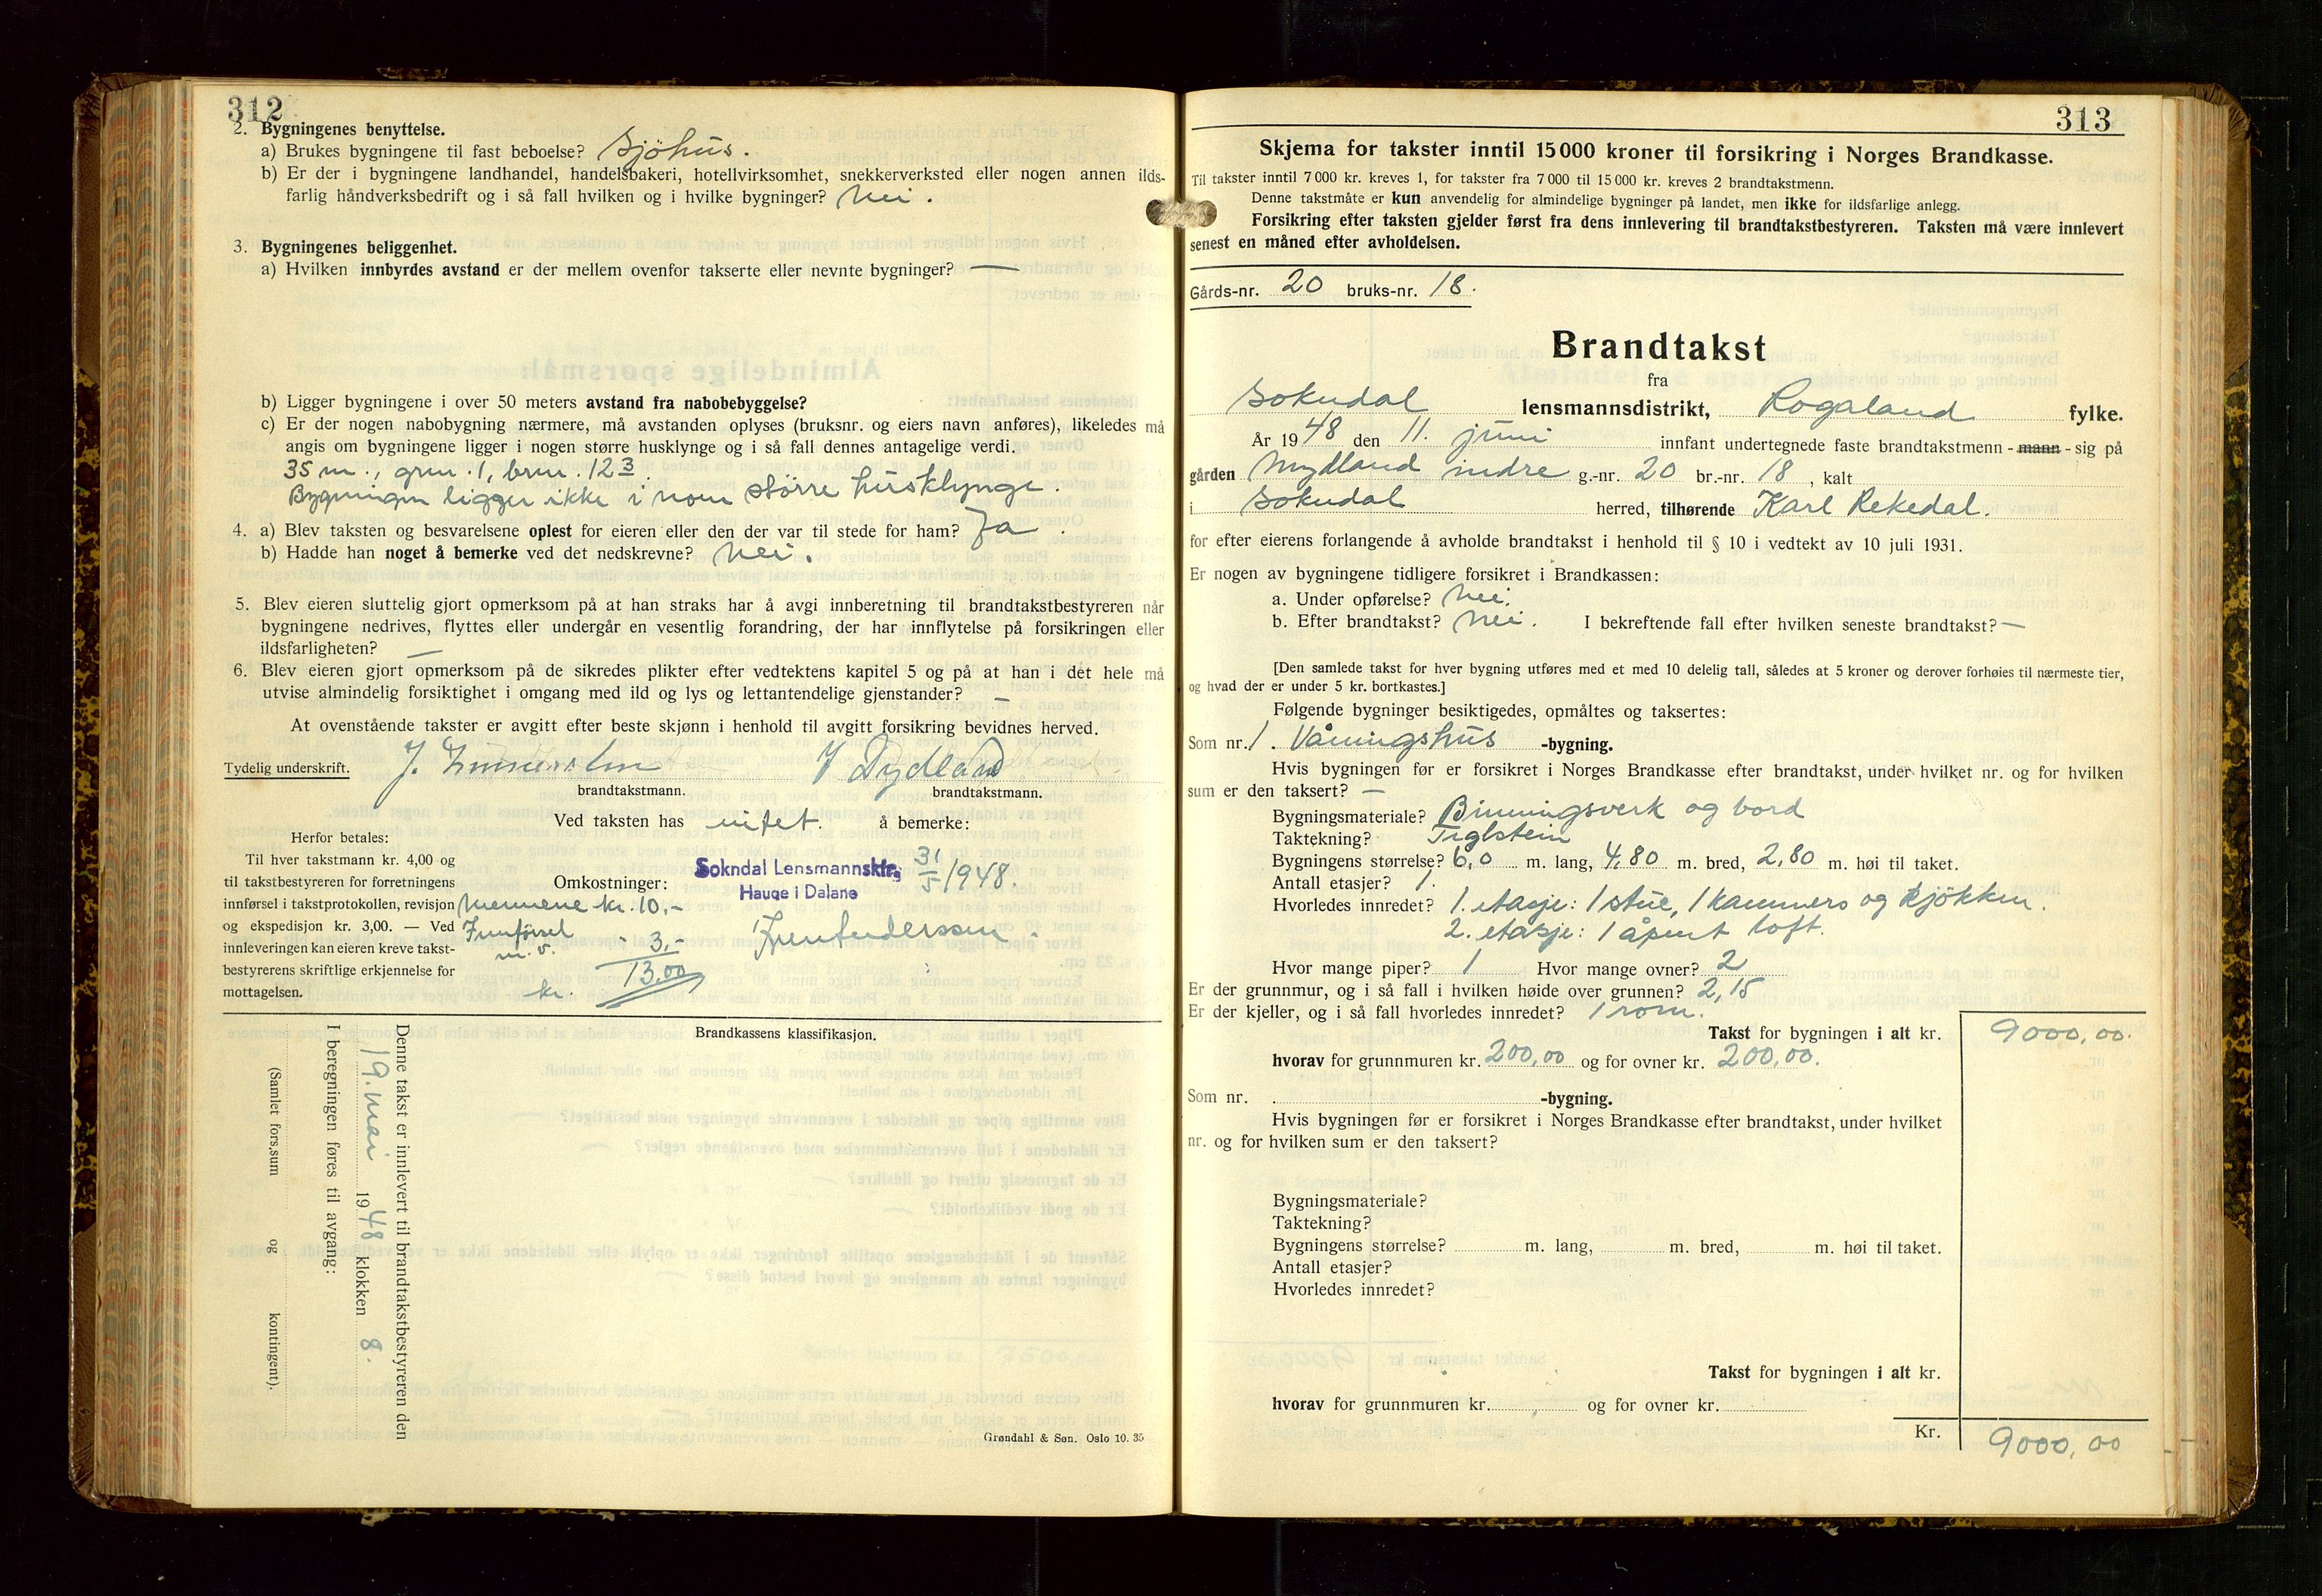 312
2. Bygningenes benyttelse.
a) Brukes bygningene til fast beboelse? Sjöhus.
b) Er der i bygningene landhandel, handelsbakeri, hotellvirksomhet, snekkerverksted eller nogen annen ilds-
farlig håndverksbedrift og i så fall hvilken og i hvilke bygninger? Nei.
3. Bygningenes beliggenhet.
a) Hvilken innbyrdes avstand er der mellem ovenfor takserte eller nevnte bygninger? —
b) Ligger bygningene i over 50 meters avstand fra nabobebyggelse?
c) Er der nogen nabobygning nærmere, må avstanden oplyses (bruksnr. og eiers navn anføres), likeledes må
angis om bygningene ligger i nogen større husklynge og i så fall dennes antagelige verdi.
35 m., grnr. 1, brnr. 123
Bygningen ligger ikke i noen større husklynge.
4. a) Blev taksten og besvarelsene oplest for eieren eller den der var til stede for ham? Ja
b) Hadde han noget å bemerke ved det nedskrevne? Nei.
5. Blev eieren sluttelig gjort opmerksom på at han straks har å avgi innberetning til brandtakstbestyreren når
bygningene nedrives, flyttes eller undergår en vesentlig forandring, der har innflytelse på forsikringen eller
ildsfarligheten? —
6. Blev eieren gjort opmerksom på de sikredes plikter efter vedtektens kapitel 5 og på at han i det hele må
utvise almindelig forsiktighet i omgang med ild og lys og lettantendelige gjenstander? —
At ovenstående takster er avgitt efter beste skjønn i henhold til avgitt forsikring bevidnes herved.
Tydelig underskrift. J. J Dydland
brandtakstmann. brandtakstmann.
Ved taksten has intet. å bemerke:
Herfor betales:
Til hver takstmann kr. 4,00 og
til takstbestyreren for forretningens
innførsel i takstprotokollen, revisjon
og ekspedisjon kr. 3,00. — Ved
innleveringen kan eieren kreve takst-
bestyrerens skriftlige erkjennelse for
mottagelsen.
Omkostninger:
Mennene kr. 10,-
Innførsel m.v. " 3,-
kr. 13,00
Sokndal Lensmannsktr. 31/5 1948.
Hauge i Dalane
Brandkassens klassifikasjon.
Denne takst er innlevert til brandtakstbestyreren den
19. mai 1948 klokken 8.
I beregningen føres til avgang:
(Samlet fors.sum og kontingent).
Grøndahl & Søn. Oslo 10. 35
313
Skjema for takster inntil 15 000 kroner til forsikring i Norges Brandkasse.
Til takster inntil 7 000 kr. kreves 1, for takster fra 7 000 til 15 000 kr. kreves 2 brandtakstmenn.
Denne takstmåte er kun anvendelig for almindelige bygninger på landet, men ikke for ildsfarlige anlegg.
Forsikring efter taksten gjelder først fra dens innlevering til brandtakstbestyreren. Taksten må være innlevert
senest en måned efter avholdelsen.
Gårds-nr. 20 bruks-nr. 18.
Brandtakst
fra
Sokndal lensmannsdistrikt, Rogaland fylke.
År 1948 den 11. juni innfant undertegnede faste brandtakstmenn - mann - sig på
gården Mydland indre g.-nr. 20 br.-nr. 18, kalt
i Sokndal herred, tilhørende Karl Rekedal.
for efter eierens forlangende å avholde brandtakst i henhold til § 10 i vedtekt av 10 juli 1931.
Er nogen av bygningene tidligere forsikret i Brandkassen:
a. Under opførelse? Nei.
b. Efter brandtakst? Nei. I bekreftende fall efter hvilken seneste brandtakst? —
[Den samlede takst for hver bygning utføres med et med 10 delelig tall, således at 5 kroner og derover forhøies til nærmeste tier,
og hvad der er under 5 kr. bortkastes.]
Følgende bygninger besiktigedes, opmåltes og taksertes:
Som nr. 1. Våningshus -bygning.
Hvis bygningen før er forsikret i Norges Brandkasse efter brandtakst, under hvilket nr. og for hvilken
sum er den taksert? —
Bygningsmateriale? Binningsverk og bord
Taktekning? Teglstein
Bygningens størrelse? 6,0 m. lang, 4,80 m. bred, 2,80 m. høi til taket.
Antall etasjer? 1.
Hvorledes innredet? 1. etasje: 1 stue, 1 kammers og kjökken.
2. etasje: 1 åpent loft.
Hvor mange piper? 1 Hvor mange ovner? 2
Er der grunnmur, og i så fall i hvilken høide over grunnen? 2,15
Er der kjeller, og i så fall hvorledes innredet? 1 rom.
Takst for bygningen i alt kr. 9000,00.
hvorav for grunnmuren kr. 200,00 og for ovner kr. 200,00.
Som nr. -bygning.
Hvis bygningen før er forsikret i Norges Brandkasse efter brandtakst, under hvilket
nr. og for hvilken sum er den taksert?
Bygningsmateriale?
Taktekning?
Bygningens størrelse? m. lang, m. bred, m. høi til taket.
Antall etasjer?
Hvorledes innredet?
Takst for bygningen i alt kr.
hvorav for grunnmuren kr. og for ovner kr.
Kr. 9000,00